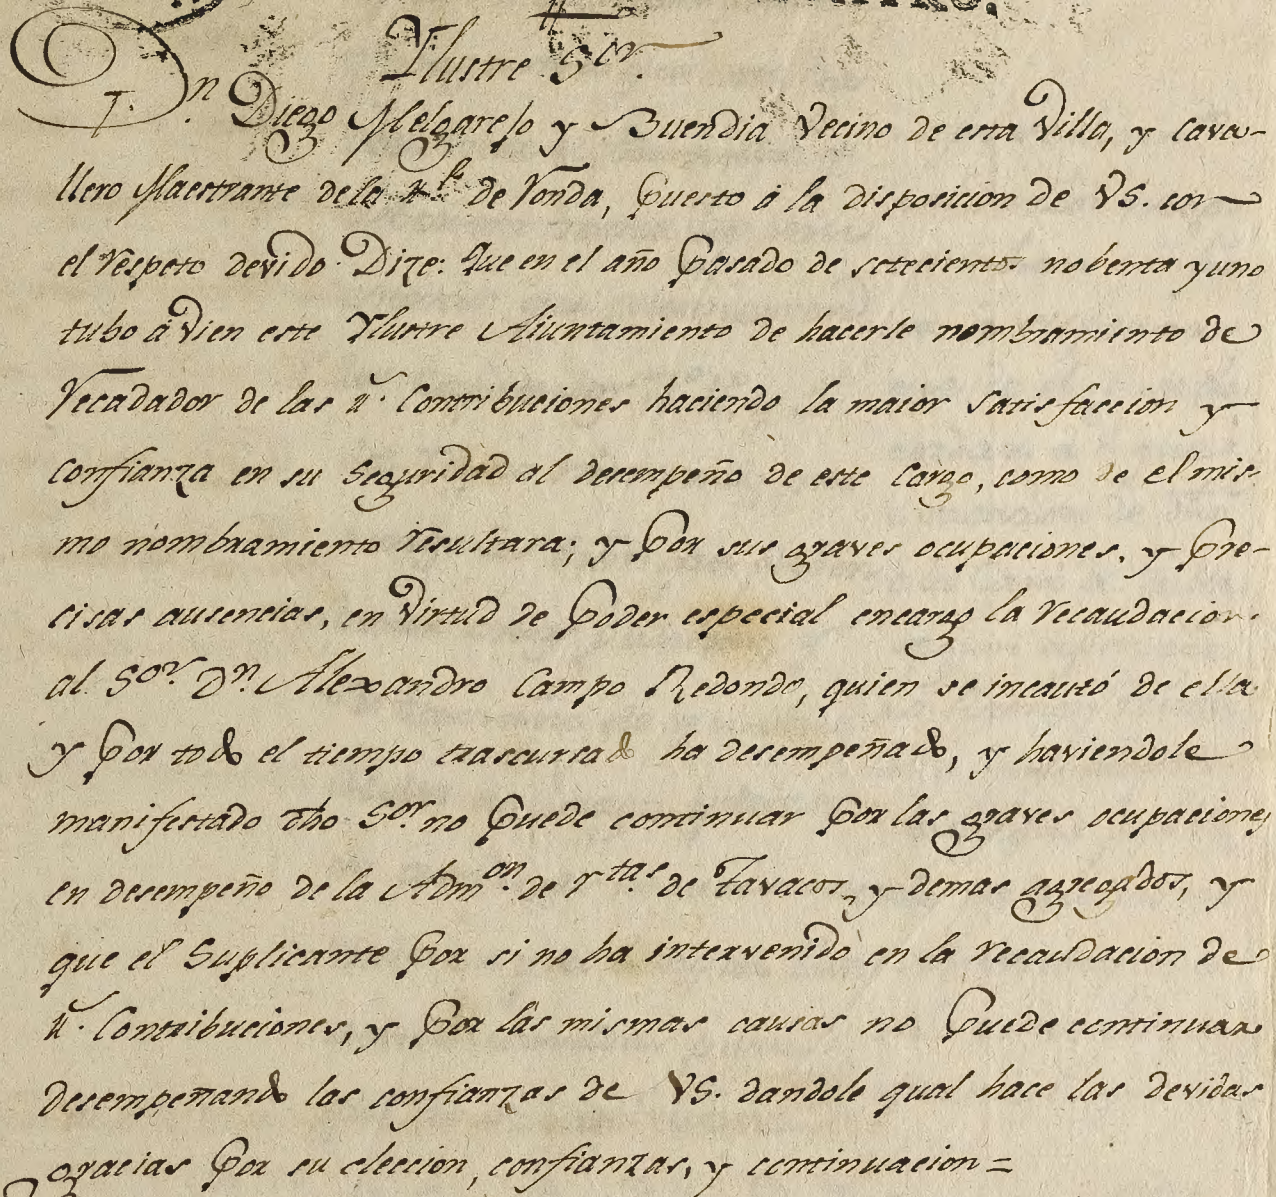 Ylustre Sor.
Dn. Diego Melgarejo y Buendia Vecino de esta Villa, y Cava-
llero Maestrante de la Rl. de Ronda, puesto á la disposicion de VS. con
el respeto devido Dize: Que en el año pasado de setecientos nobenta y uno
tubo á vien este Ylustre Aiuntamiento de hacerle nombramiento de
Recadador de las Rs. Contribuciones haciendo la maior satisfaccion y
confianza en su seguridad al desempeño de este cargo, como de el mis-
mo nombramiento resultara; y por sus graves ocupaciones, y pre-
cisas ausencias, en virtud de Poder especial encargo la recaudacion
al Sor. Dn. Alexandro Campo Redondo, quien se incautó de ella
y por todo el tiempo trascurrado ha desempeñado, y haviendole
manifestado dho Sor. no puede continuar por las graves ocupaciones
en desempeño de la Admon. de rtas. de Tavacos, y demas agregados, y
que el Suplicante por si no ha intervenido en la recaudacion de
Rs. Contribuciones, y por las mismas causas no puede continuar
desempeñando las confianzas de VS. dandole qual hace las devidas
gracias por su eleccion, confianzas, y continuacion=